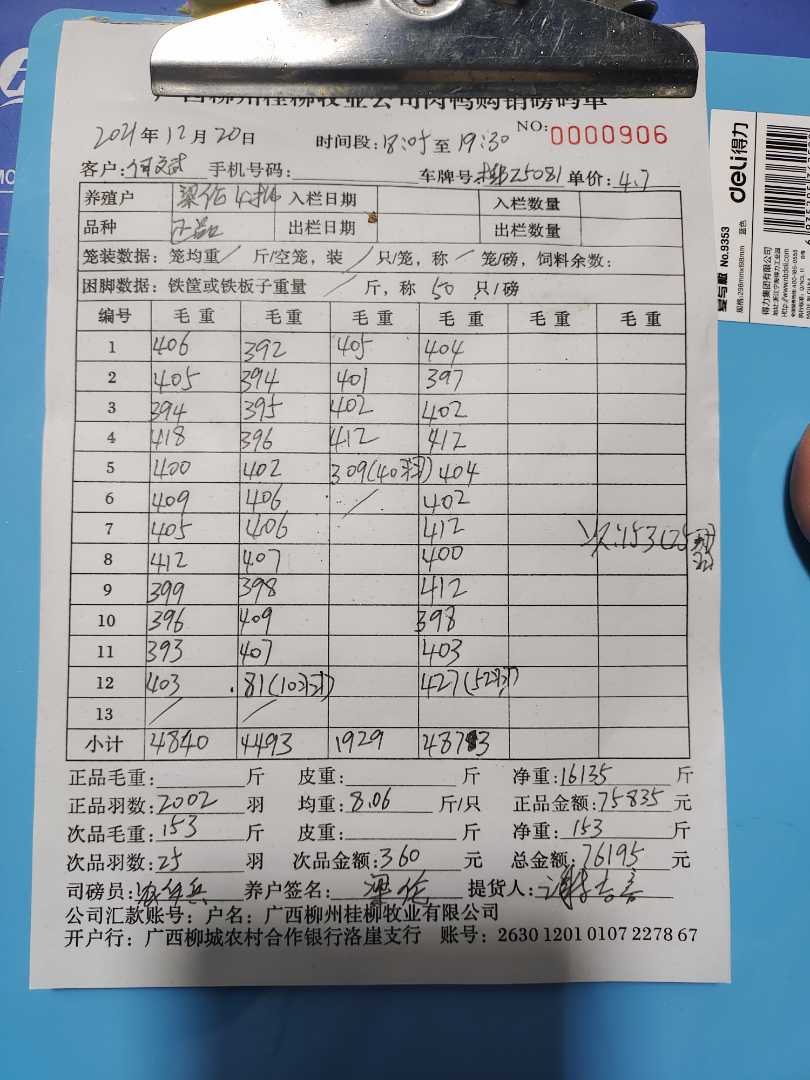 广西柳州桂柳牧业公司肉鸭购销磅码单
2021年12月20日 时间段:18:05至19:30 NO:0000906
客户: 手机号码: 车牌号: 25081 单价:4.7
养殖户 梁伦 入栏日期 入栏数量
品种 正品 出栏日期 出栏数量
笼装数据:笼均重/斤/空笼,装/只/笼,称/笼/磅,饲料余数:
困脚数据:铁筐或铁板子重量/斤,称50只/磅
编号 毛重 毛重 毛重 毛重 毛重 毛重
1 406 392 405 404
2 405 394 401 397
3 394 395 402 402
4 418 396 412 412
5 400 402 309(40羽) 404
6 409 406 / 402
7 405 406 412 次:153(25羽)
8 412 407 400
9 399 398 412
10 396 409 398
11 393 407 403
12 403 81(10羽) 427(52羽)
13 / /
小计 4840 4493 1929 4873
正品毛重: 斤 皮重: 斤 净重:16135斤
正品羽数:2002羽 均重:8.06斤/只 正品金额:75835元
次品毛重:153斤 皮重: 斤 净重:153斤
次品羽数:25羽 次品金额:360元 总金额:76195元
司磅员: 养户签名:梁伦 提货人:
公司汇款账号:户名:广西柳州桂柳牧业有限公司
开户行:广西柳城农村合作银行洛崖支行 账号:2630 1201 0107 2278 67
deli得力
爱与戴 No.9353 蓝色
规格:298mmx88mm
得力集团有限公司